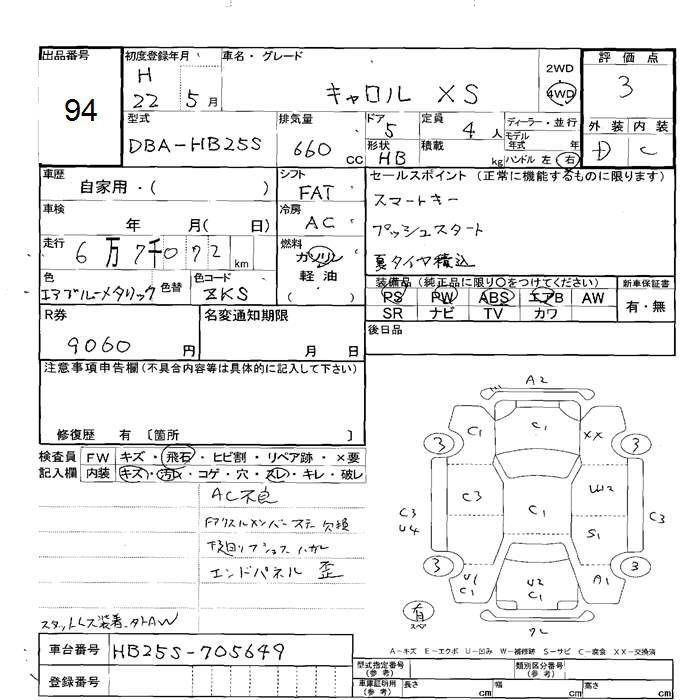 出品番号
94
初度登録年月
H
22 5月
車名・グレード
キャロル XS
2WD
4WD
評価点
3
外装 内装
D C
型式
DBA-HB25S
排気量
660 cc
ドア
5
形状
HB
定員
4 人
積載
kg
ディーラー・並行
モデル
年式 年
ハンドル 左 右
車歴
自家用・( )
シフト
FAT
セールスポイント (正常に機能するものに限ります)
スマートキー
プッシュスタート
夏タイヤ積込
車検
年 月( 日)
冷房
AC
走行
6万7千072 km
燃料
ガソリン
軽油
( )
色
エアブルーメタリック
色替
色コード
ZKS
装備品 (純正品に限り○をつけてください)
PS PW ABS エアB AW
SR ナビ TV カワ
新車保証書
有・無
R券
9060 円
名変通知期限
月 日
後日品
注意事項申告欄(不具合内容等は具体的に記入して下さい)
修復歴 有 〔箇所 〕
検査員 FW キズ・飛石・ヒビ割・リペア跡・×要
記入欄 内装 キズ・汚レ・コゲ・穴・スレ・キレ・破レ
AC不良
Fアクスルメンバーステー欠損
エンドパネル歪
スタッドレス装着
車台番号 HB25S-705649
登録番号
A2
C1
C1
XX
3
3
C3
U4
C3
C1
W2
S1
C3
3
3
U1
C1
U2
C1
A1
有
スペア
A-キズ E-エクボ U-凹み W-補修跡 S-サビ C-腐食 XX-交換済
型式指定番号
(参考)
類別区分番号
(参考)
車庫証明用
(参考)
長さ cm 幅 cm 高さ cm